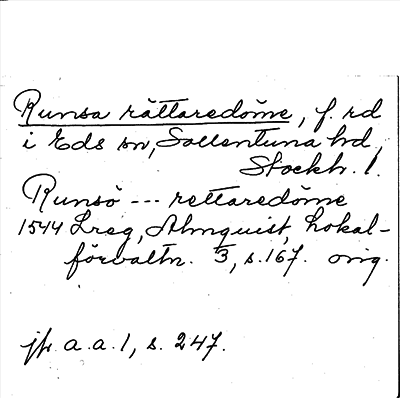 Runsa rättaredöme, f. rd
i Eds sn, Sollentuna hd,
Stockh. l.
Runsö --- rettaredöme
1544 Lreg, Almquist, Lokal-
förvaltn. 3, s. 167. orig.
jfr a.a. 1, s. 247.